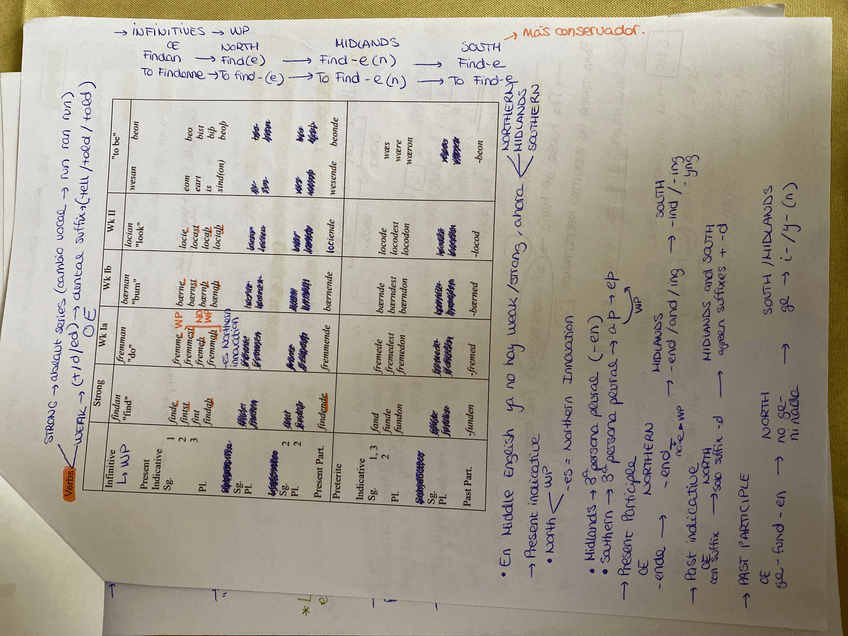 → INFINITIVES → WP
→ más conservador.
OE NORTH MIDLANDS SOUTH
Findan → Find(e) → Find-e(n) → Find-e
To Findanne → To find-(e) → To Find-e(n) → To Find-e
STRONG → ablaut series (cambia vocal → run ran run)
Verbs
WEAK → (t/d/ed) → dental suffix → (tell/told/told)
OE
Strong Wk Ia Wk Ib Wk II "to be"
Infinitive findan fremman bærnan locian wesan beon
↳ WP "find" "do" "burn" "look"
Present
Indicative
Sg. 1 finde fremme WP bærne locie eom beo
2 fintst fremmest bærnst locast eart bist
3 fint fremeþ NO bærnþ locaþ is biþ
Pl. findaþ fremmaþ WP bærnaþ lociaþ sind(on) beoþ
-es Northern
innovation
Sg.
Pl.
Sg. 2
Pl. 2
Present Part. findende fremmende bærnende lociende wesende beonde
Preterite
Indicative
Sg. 1, 3 fand fremede bærnde locode wæs
2 funde fremedest bærndest locodest wære
Pl. fundon fremedon bærndon locodon wæron
Sg.
Pl.
Past Part. -funden -fremed -bærned -locod -beon
• En Middle English ya no hay weak/strong, ahora
NORTHERN
MIDLANDS
SOUTHERN
→ Present indicative
• North
WP
-es = Northern Innovation
• Midlands → 3ª persona plural (-en)
• Southern → 3ª persona plural → aþ → eþ
WP
→ Present Participle
OE NORTHERN MIDLANDS SOUTH
-ende → -end → -end/and/ing → -ind/-ing
-yng
no-e → WP
→ Past indicative
OE NORTH MIDLANDS and SOUTH
con suffix → solo suffix -d → agreen suffixes + -d
→ PAST PARTICIPLE
OE NORTH SOUTH/MIDLANDS
ge-fund-en → no ge- → ge → i-/y-(n)
ni nada